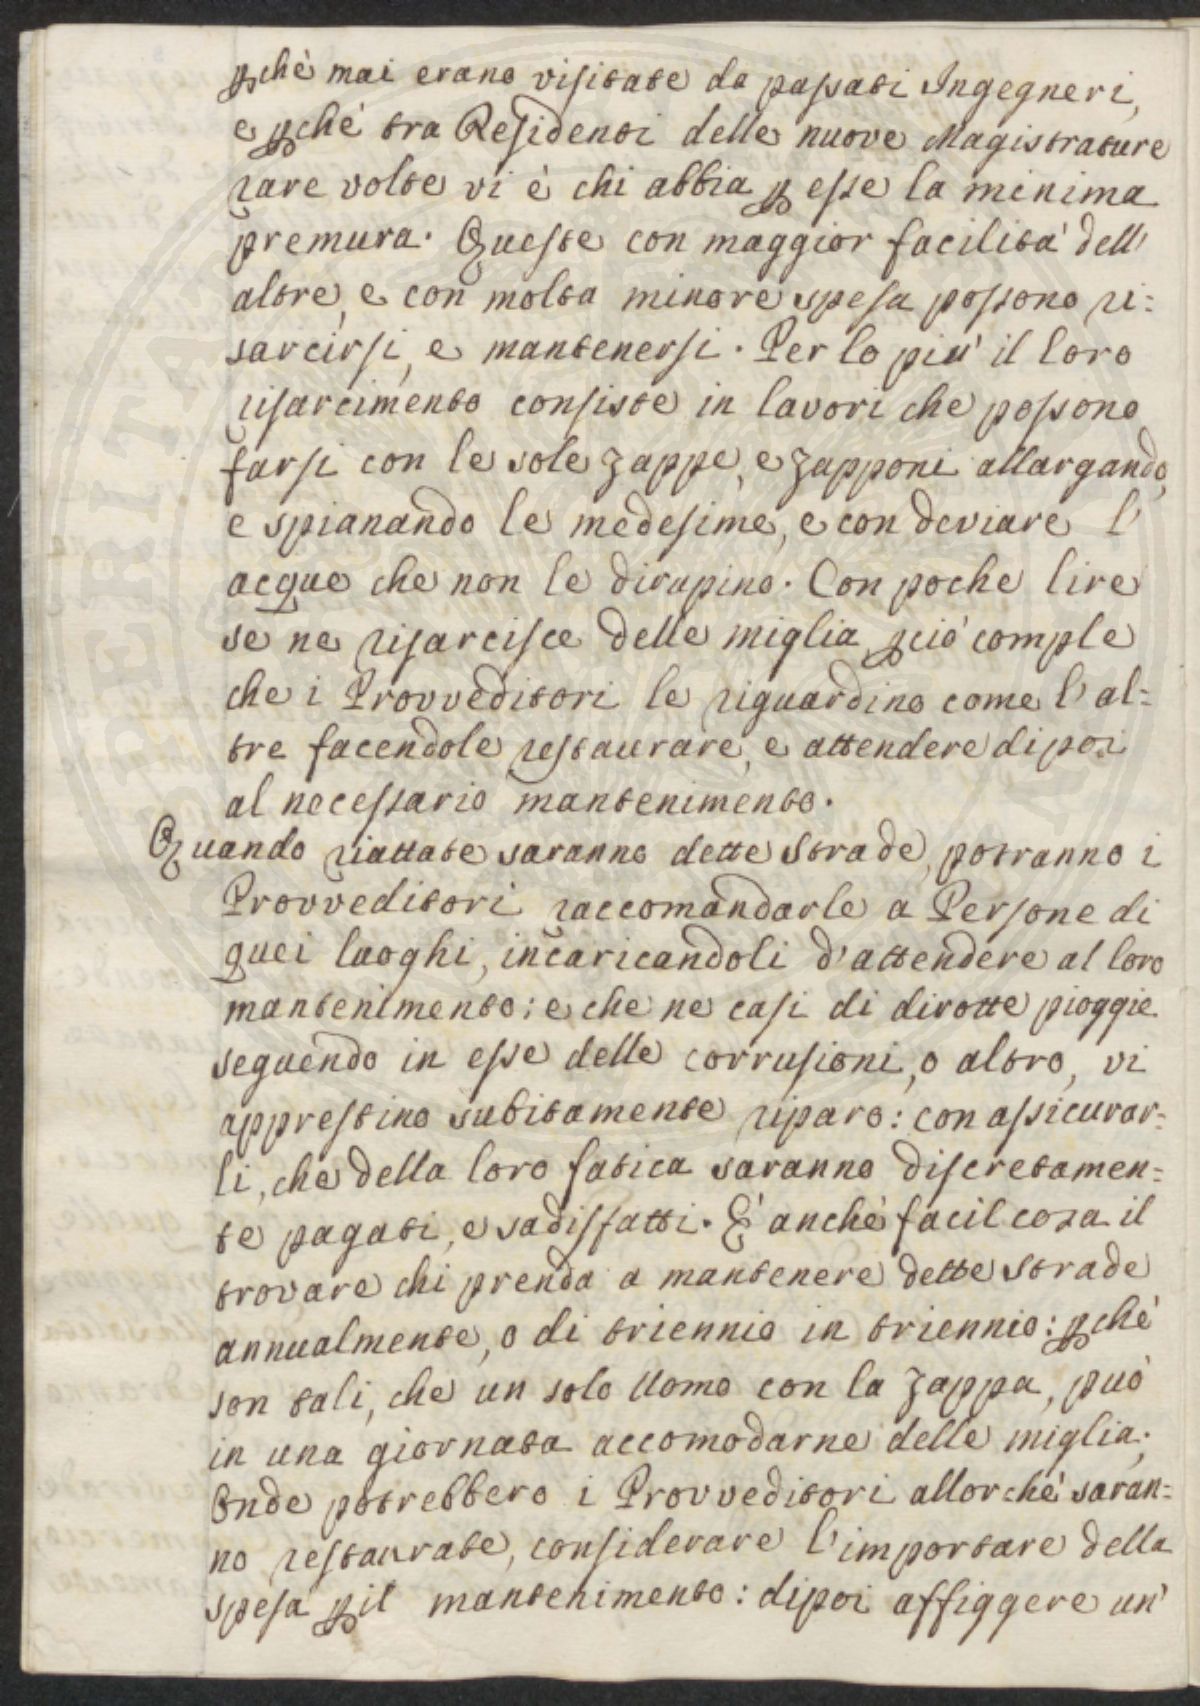 pchè mai erano visitate da passati Ingegneri,
e pchè tra Residenti delle nuove Magistrature
rare volte vi è chi abbia p esse la minima
premura. Queste con maggior facilità dell'
altre, e con molta minore spesa possono ri=
sarcirsi, e mantenersi. Per lo più il loro
risarcimento consiste in lavori che possono
farsi con le sole zappe, e zapponi allargando,
e spianando le medesime, e con deviare l'
acque che non le dirupino. Con poche lire
se ne risarcisce delle miglia pciò comple
che i Provveditori le riguardino come l'al=
tre facendole restaurare, e attendere dipoi
al necessario mantenimento.
Quando riattate saranno dette Strade, potranno i
Provveditori raccomandarle a Persone di
quei luoghi, incaricandoli d'attendere al loro
mantenimento: e che ne casi di dirotte pioggie
seguendo in esse delle corrusioni, o altro, vi
apprestino subitamente riparo: con assicurar=
li, che della loro fatica saranno discretamen=
te pagati, e sadisfatti. E' anche facil cosa il
trovare chi prenda a mantenere dette Strade
annualmente, o di triennio in triennio: pchè
son tali, che un solo Uomo con la zappa, può
in una giornata accomodarne delle miglia.
Onde potrebbero i Provveditori allorchè saran=
no restaurate, considerare l'importare della
spesa p il mantenimento: dipoi affiggere un'
SPERITAT